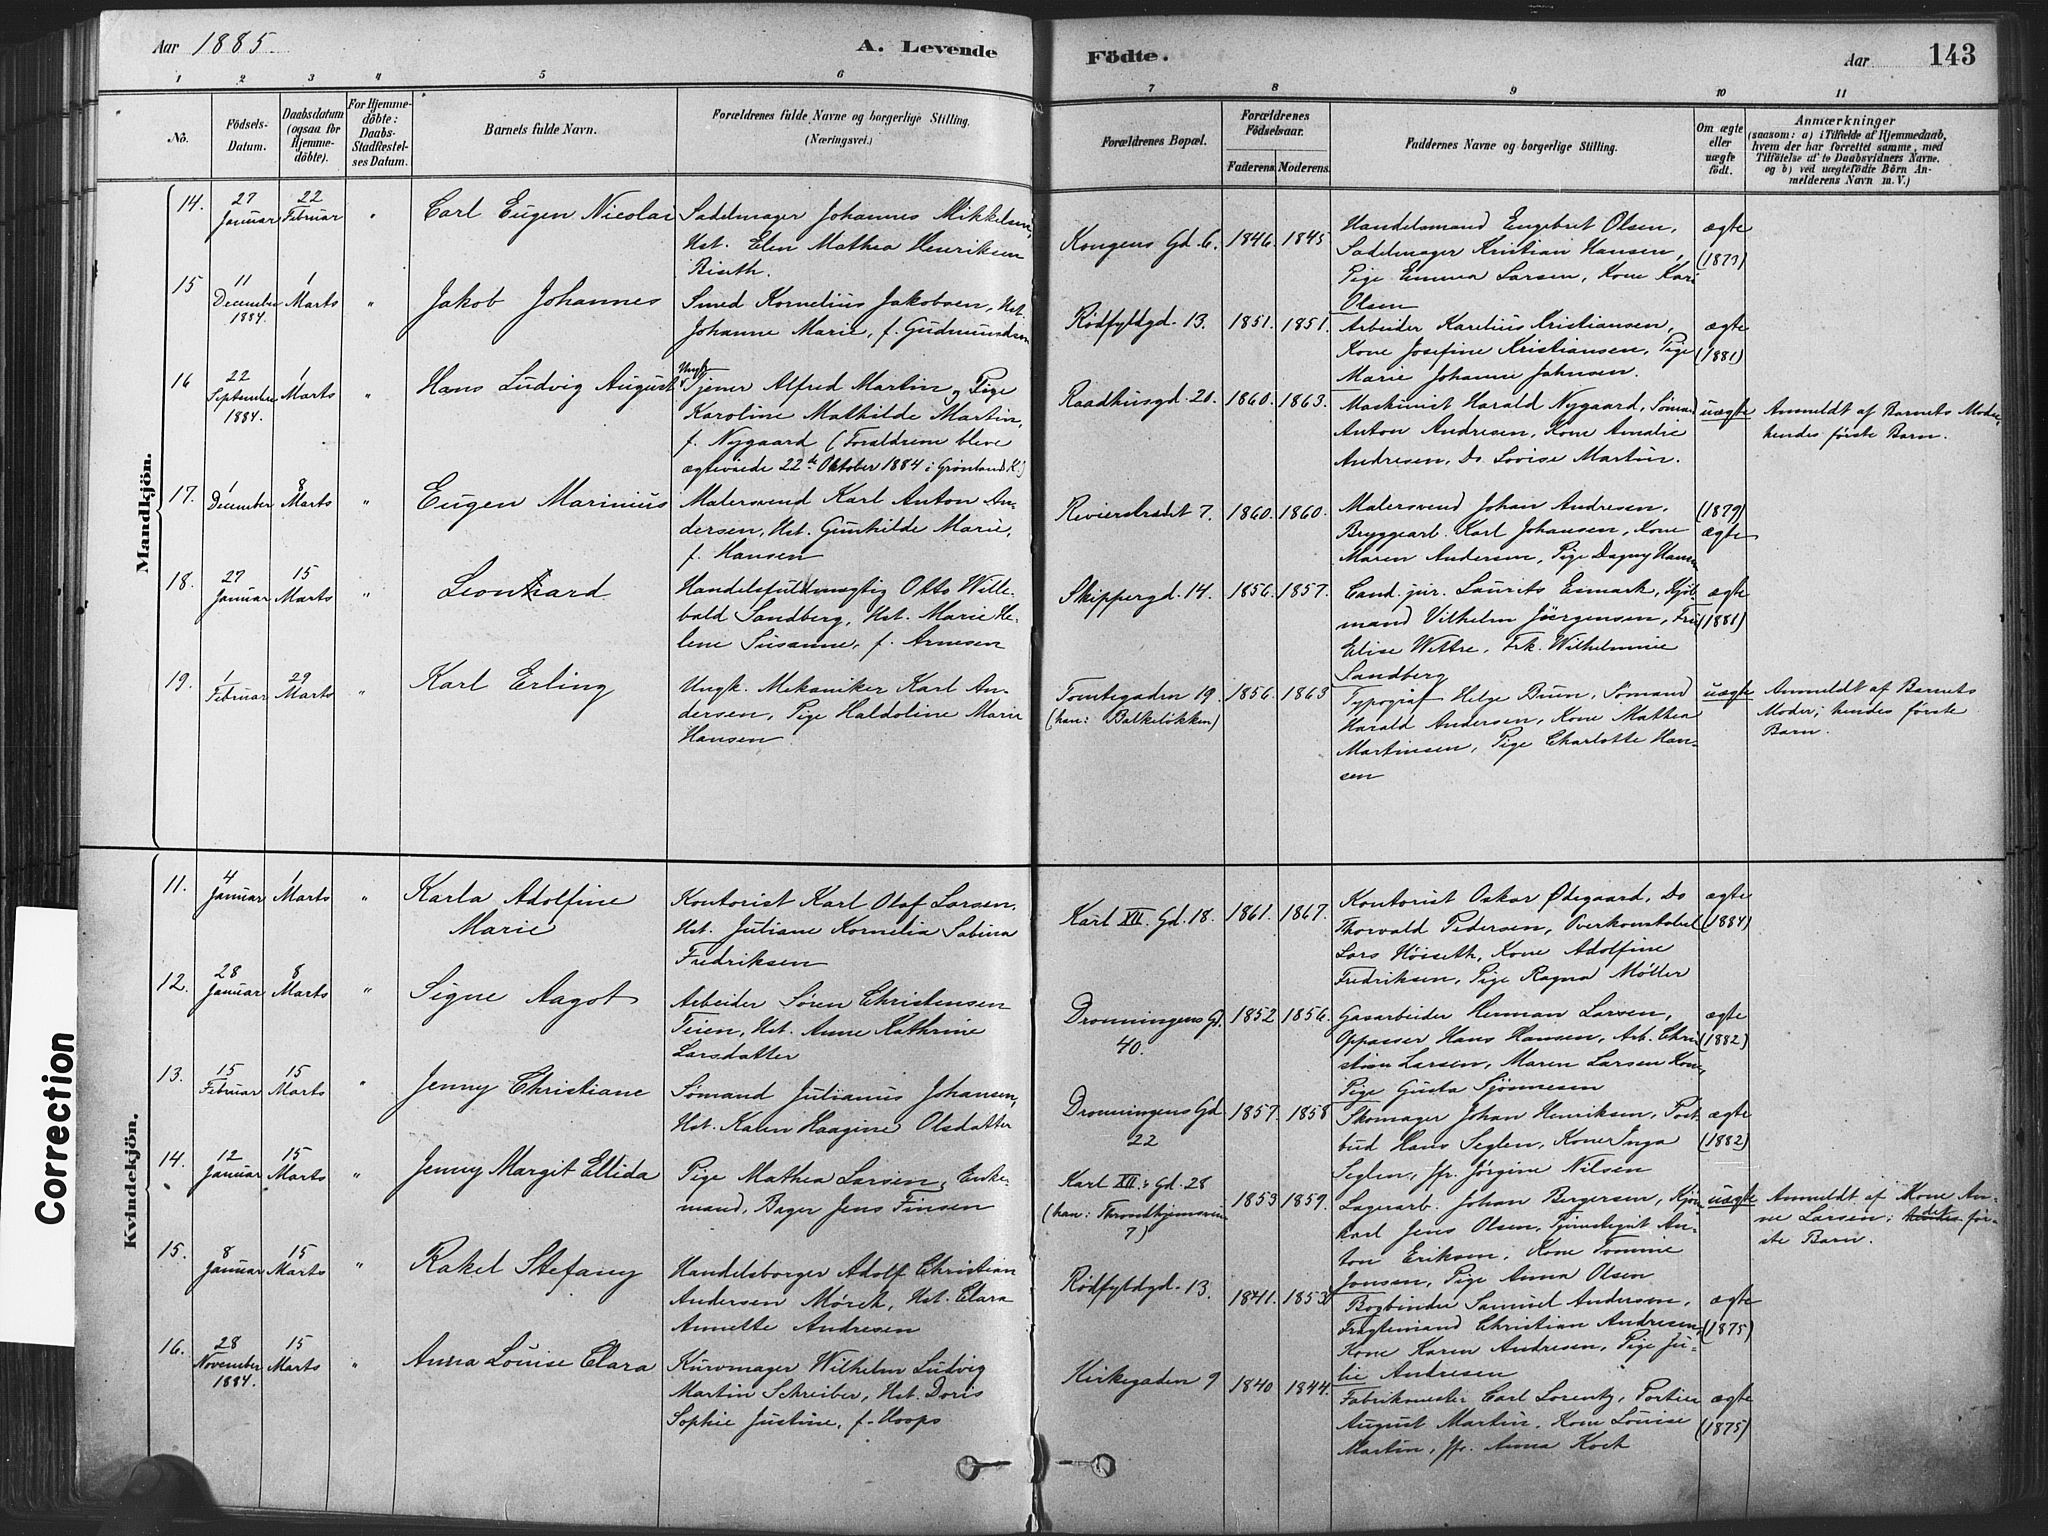 Aar 1885.
A. Levende
Födte.
Aar
143
1 2 3 4 5 6 7 8 9 10 11
No.
Födsels-
Datum.
Daabsdatum
(ogsaa for
Hjemme-
döbte).
For Hjemme-
döbte:
Daabs-
Stadfæstel-
ses Datum.
Barnets fulde Navn.
Forældrenes fulde Navne og borgerlige Stilling.
(Næringsvei.)
Forældrenes Bopæl.
Forældrenes
Födselsaar.
Faderens. Moderens.
Faddernes Navne og borgerlige Stilling.
Om ægte
eller
uægte
födt.
Anmærkninger
(saasom: a) i Tilfælde af Hjemmedaab,
hvem der har forrettet samme, med
Tilföielse af to Daabsvidners Navne.
og b) ved uægtefödte Börn An-
melderens Navn m. V.)
Mandkjön.
14.
27
Januar
22
Februar
"
Carl Eugen Nicolai
Sadelmager Johannes Mikkelsen,
Hst. Elen Mathea Henriksen
Biseth.
Kongens Gd. 6.
1846. 1845
Handelsmand Engebret Olsen,
Sadelmager Kristian Hansen,
Pige Emma Larsen, Kone Kari
Olsen
ægte
(1873)
15
11
December
1884.
1
Marts
"
Jakob Johannes
Smed Kornelius Jakobsen, Hst.
Johanne Marie, f. Gudmundsen
Rödfyldgd. 13.
1851. 1851.
Arbeider Karelius Cristiansen,
Kone Josefine Kristiansen, Pige
Marie Johanne Jahnsen.
ægte
(1881)
16
22
September
1884.
1
Marts
"
Hans Ludvig August
Ungk.
Tjener Alfred Martin og Pige
Karoline Mathilde Martin,
f. Nygaard (Forældrene bleve
ægteviede 22de Oktober 1884 i Grönlands K.)
Raadhusgd. 20.
1860. 1863.
Maskinist Harald Nygaard, Sömand
Anton Andresen, Kone Amalie
Andresen, Do Lovise Martin.
uægte
Anmeldt af Barnets Moder,
hendes förste Barn.
17.
1
December
8
Marts
"
Eugen Marinius
Malersvend Karl Anton An-
dersen, Hst. Gunhilde Marie,
f. Hansen
Revierstrædet 7.
1860. 1860.
Malersvend Johan Andresen,
Bryggearb. Karl Johansen, Kone
Maren Andersen, Pige Dagny Hansen
(1879)
ægte
18.
27
Januar
15
Marts
"
Leonhard
Handelsfuldmægtig Otto Wille-
bald Sandberg, Hst. Marie He-
lene Susanne, f. Arnesen
Skippergd. 14.
1856. 1857.
Cand. jur. Laurits Esmark, Kjöb-
mand Vilhelm Jörgensen, Fru
Elise Wettre, Frk. Wilhelmine
Sandberg
ægte
(1881)
19.
1
Februar
29
Marts
"
Karl Erling
Ungk. Mekaniker Karl An-
dersen, Pige Haldoline Marie
Hansen
Tomtegaden 19.
(han: Balkelökken)
1856. 1863
Typograf Helge Bruun, Sömand
Harald Andersen, Kone Mathea
Martinsen, Pige Charlotte Han-
sen
uægte
Anmeldt af Barnets
Moder; hendes förste
Barn.
Kvindekjön.
11.
4
Januar
1
Marts
"
Karla Adolfine
Marie
Kontorist Karl Olaf Larsen,
Hst. Juliane Kornelia Sabina
Fredriksen
Karl XII. Gd. 18.
1861. 1867.
Kontorist Oskar Ödegaard, Do
Thorvald Pedersen, Overkonstabel
Lars Höiseth, Kone Adolfine
Fredriksen, Pige Ragna Möller
ægte
(1884)
12.
28
Januar
8
Marts
"
Signe Aagot
Arbeider Sören Christensen
Teien, Hst. Anne Kathrine
Larsdatter
Dronningens Gd.
40.
1852 1856.
Gasarbeider Herman Larsen,
Oppasser Hans Hansen, Arb. Chri-
stian Larsen, Maren Larsen Kone,
Pige Gusta Sjönnesen
ægte
(1882)
13.
15
Februar
15
Marts
"
Jenny Christiane
Sömand Julianus Johansen,
Hst. Karen Haagine Olsdatter
Dronningens Gd
22
1857. 1858
Skomager Johan Henriksen, Post-
bud Hans Seglen, Kone Inga
Seglen, Jfr. Jörgine Nilsen
ægte
(1882)
14.
12
Januar
15
Marts
"
Jenny Margit Ellida
Pige Mathea Larsen, Enke-
mand, Bager Jens Finsen
Karl XII's Gd. 28
(han: Throndhjemsveien
7)
1853 1859.
Lagerarb. Johan Bergersen, Kjöre-
karl Jens Olsen, Tjenestegut An-
ton Eriksen, Kone Tomine
Jonsen, Pige Anna Olsen
uægte
Anmeldt af Kone An-
ne Larsen; hendes det för-
ste Barn.
15.
8
Januar
15
Marts
"
Rakel Stefany
Handelsborger Adolf Christian
Andersen Mörck, Hst. Clara
Annette Andresen
Rödfyldgd. 13.
1841. 1853
Bogbinder Samuel Andersen,
Fragtemand Christian Andresen,
Kone Karen Andresen, Pige Ju-
lie Andresen
ægte
(1875)
16.
28
November
1884.
15
Marts
"
Anna Louise Clara
Kurvmager Wilhelm Ludvig
Martin Schreiber, Hst. Doris
Sophie Justine, f. Hoops
Kirkegaden 9
1840 1844.
Fabrikmester Carl Lorentz, Portier
August Martin, Kone Louise
Martin, Jfr. Anna Kock
ægte
(1875)
Correction